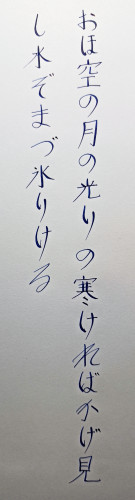 おほ空の月の光りの寒ければかげ見
し水ぞまづ氷りける